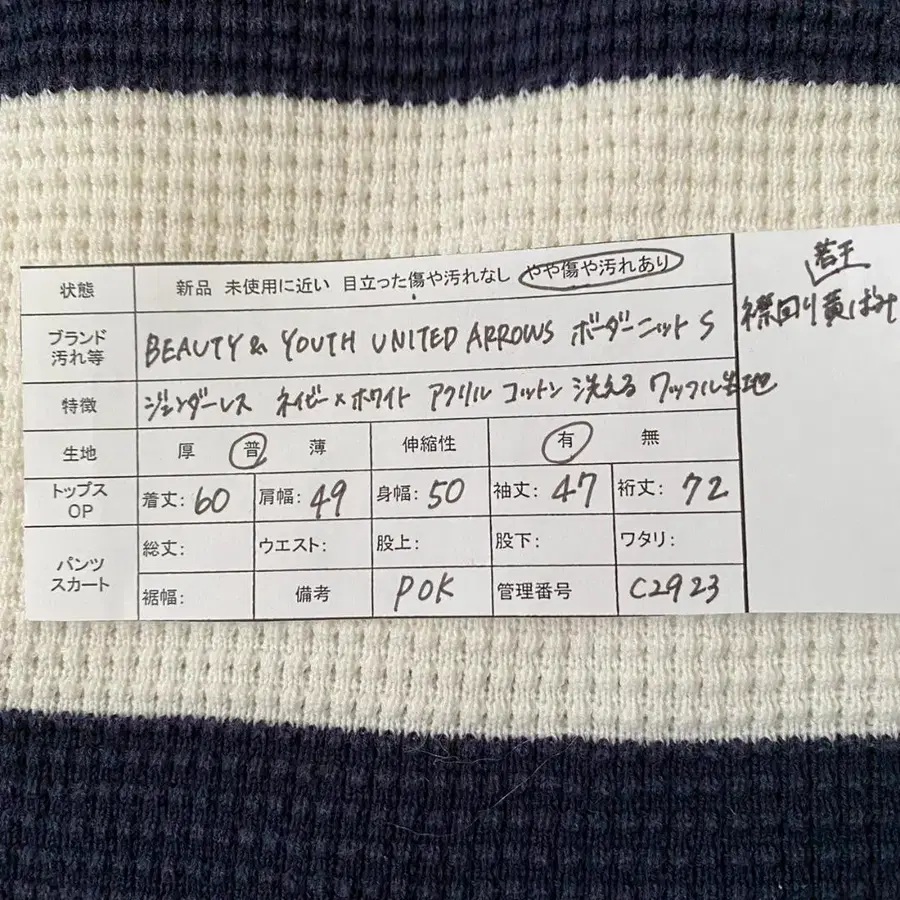 状態 新品 未使用に近い 目立った傷や汚れなし やや傷や汚れあり
ブランド
汚れ等
BEAUTY & YOUTH UNITED ARROWS ボーダーニット S
特徴 ジェンダーレス ネイビー×ホワイト アクリル コットン 洗える ワッフル生地
生地 厚 普 薄 伸縮性 有 無
トップス
OP
着丈: 60 肩幅: 49 身幅: 50 袖丈: 47 裄丈: 72
パンツ
スカート
総丈: ウエスト: 股上: 股下: ワタリ:
裾幅: 備考 POK 管理番号 C2923
若干
襟回り黄ばみ